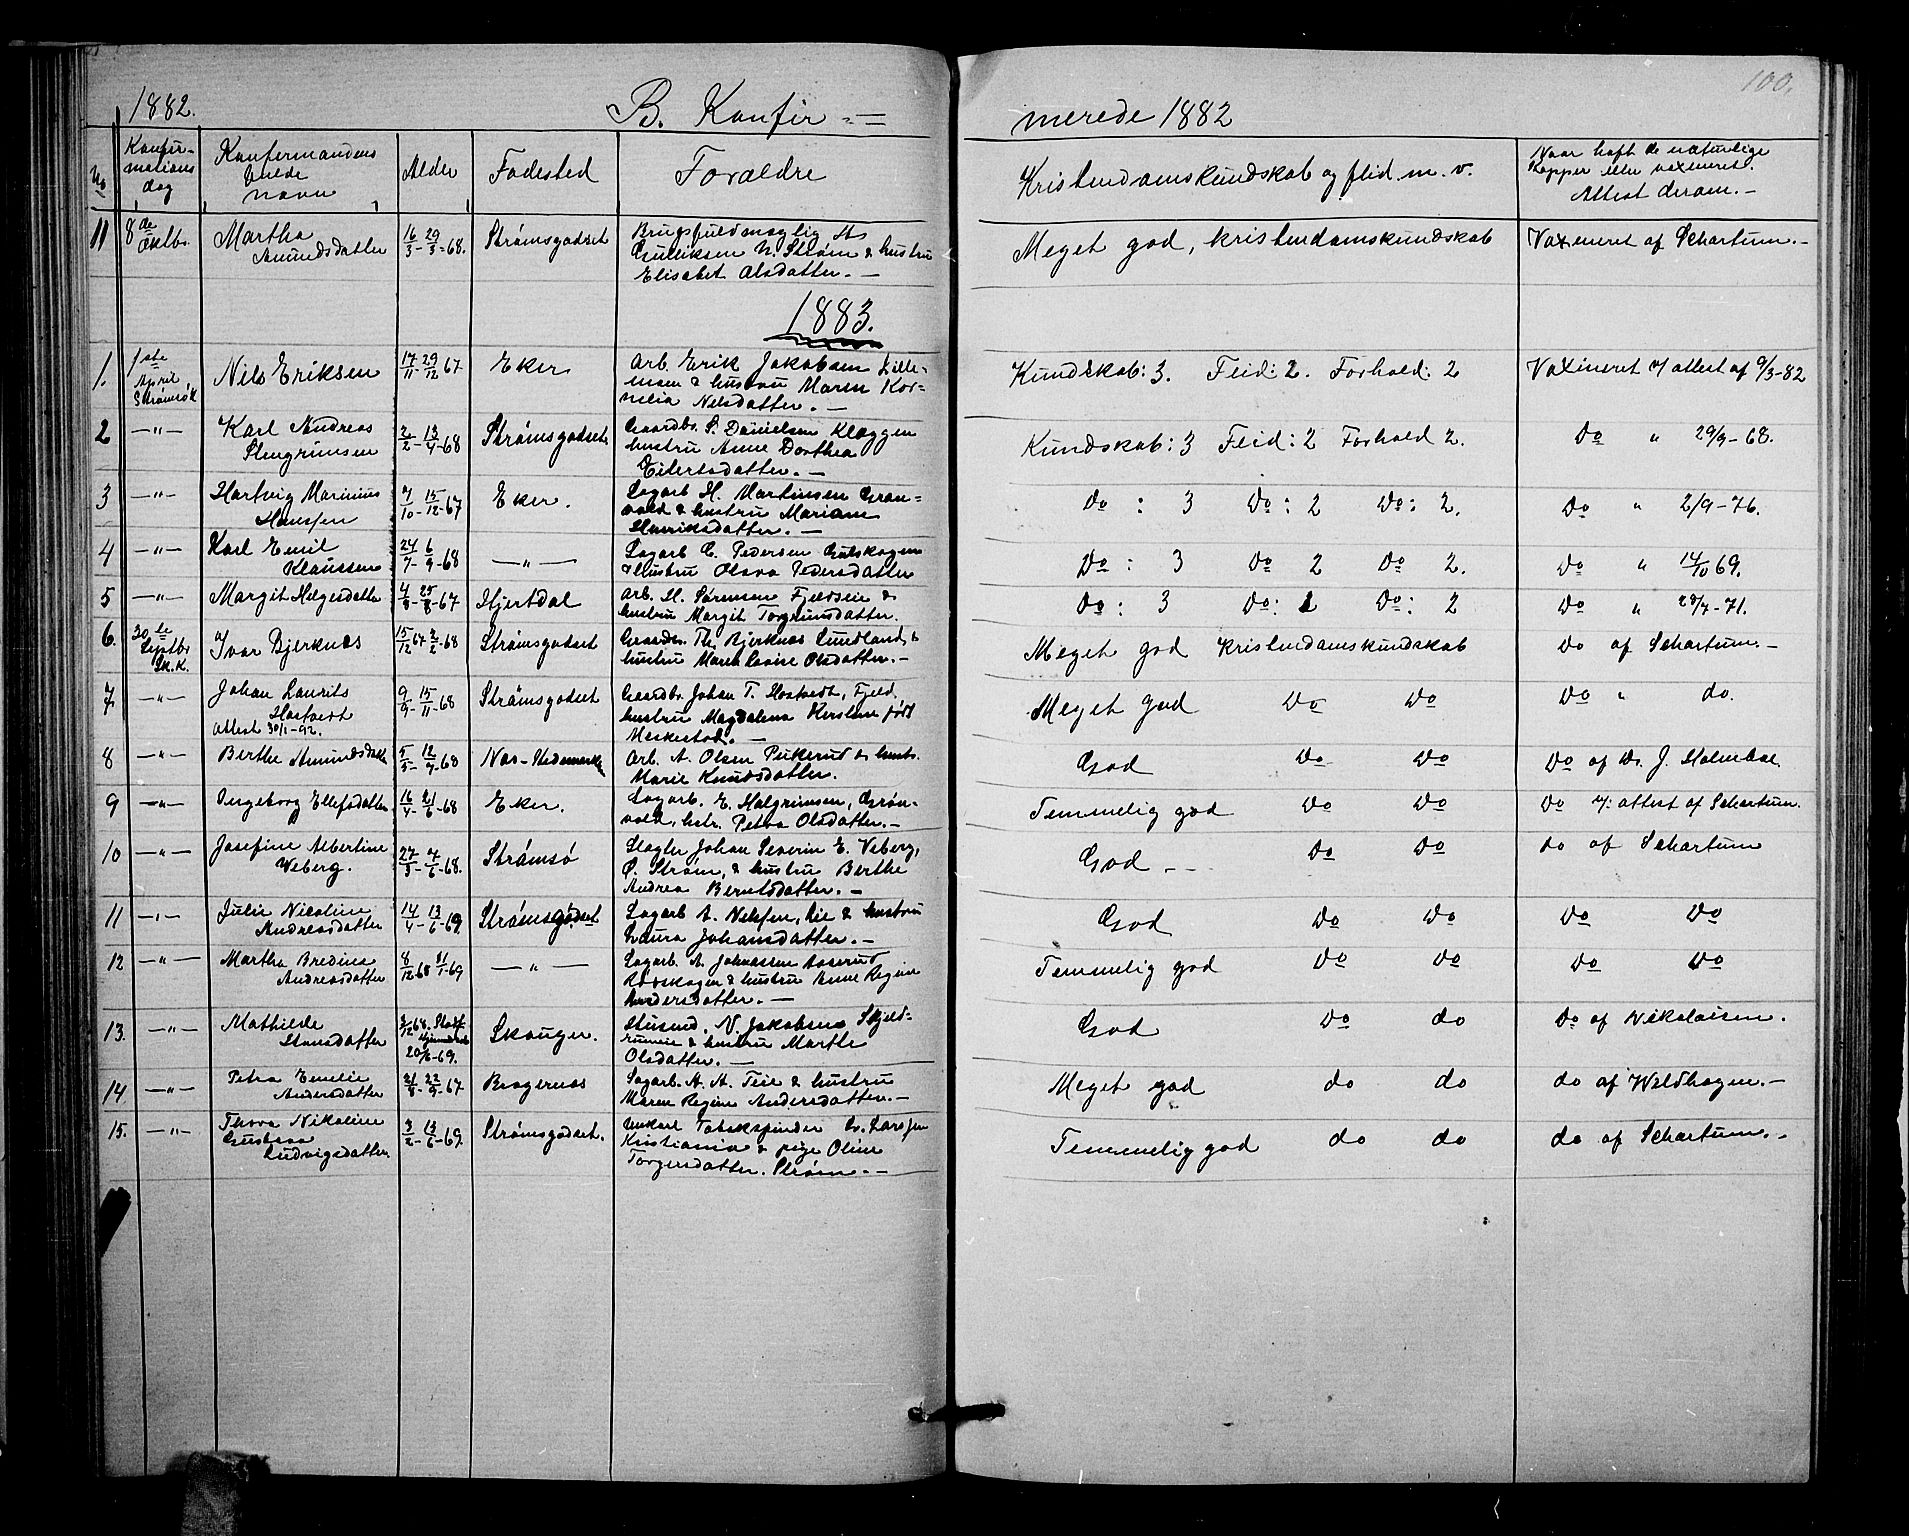 100.
1882. B. Konfir -=
merede 1882
No
Konfir-
mations
dag
Konfermandens
fulde
navn
Alder
Fødested
Forældre
Kristendamskundskab og flid. m. v.
Naar haft de naturlige
Kopper eller vaxineret.
Attest derom. -
11 8de Oktbr. Martha
Amundsdatter 16/3 - 29/3 - 68. Strømsgodset
Gulliksen N. Strøm & hustru
Elisabet Olsdatter. -
Meget god, kristendamskundskab Vaxineret af Schartum. -
1883.
1. 1ste
April
Nils Eriksen 17/11 - 29/12 67 Eker
Arb. Erik Jakobsen Lille-
moen & hustru Maren Kor-
nelia Nilsdatter. -
Kundskab: 3. Flid: 2. Forhold: 2 Vaxineret attest af 9/3-82
2 -"- Karl Andreas
Stengrimsen 2/2 - 13/4 - 68 Strømsgodset
Gaardbr. S. Danielsen Kloggen
hustru Anne Dorthea
Eilertsdatter. -
Kundskab: 3 Flid: 2 Forhold 2. Do " 29/9-68.
3 -"- Hartvig Marinius
Hanssen 7/10 - 15/12 - 67 Eker.
Sagarb H. Martinsen Grøn-
vold & hustru Mariane
Henriksdatter. -
Do : 3 Do : 2 Do : 2. Do " 2/9-76.
4 -"- Karl Emil
Klaussen 24/7 - 6/9 - 68 -"-
Sagarb C. Pedersen Gulskogen
& Hustru Olava Pedersdatter
Do : 3 Do 2 Do 2. Do " 14/10 69.
5 -"- Margit Helgesdatter 4/3 - 25/8 - 67 Hjertdal
Arb. H. Sørensen Fjeldsein &
hustru Margit Torgrimsdatter.
Do : 3 Do: 2 Do : 2 Do " 28/7-71.
6. 30te
Septbr
Sk.K. Ivar Bjerknæs 15/12 67 2/2 - 68 Strømsgodset
Th. Bjerknæs Sundland &
hustru Maren Lovise Olsdatter. -
Meget god kristendamskundskab Do af Schartum. -
7 -"- Johan Laurits
Hostvedt
Attest 30/1-92. 9/9 - 15/11 - 68 Strømsgodset
Gaardbr. Johan T. Hostvedt, Fjeld.
hustru Magdalena Kerstine født
Meskestad. -
Meget god Do Do Do " do.
8 -"- Berthe Amundsdatter 5/3 - 12/4 - 68 Næs-Hedemarken
Arb. A. Olsen Pukerud & hustr.
Marie Knudsdatter.
God Do Do Do af Dr. J. Holmboe.
9 -"- Ingeborg Ellefsdatter 16/4 - 21/6 - 68 Eker.
Sagarb. E. Halgrimsen, Grøn-
vold, hstr. Petra Olsdatter. -
Temmelig god Do Do Do attest af Schartum.
10 -"- Josefine Albertine
Weberg. 27/3 - 7/6 - 68. Strømsø
Slagter Johan Severin E. Veberg,
Ø. Strøm, & hustru Berthe
Andrea Berntsdatter. -
God - - Do Do do af Schartum
11 -"- Julie Nicoline
Andreasdatter 14/4 - 13/6 - 69. Strømsgodset
Sagarb A. Nilssen, Lie & hustru
Laura Johansdatter. -
God Do Do Do Do
12 -"- Martha Bredine
Andreasdatter 8/12 68 31/1 - 69 -"-
Sagarb. A. Johnassen Aaserud
& hustru Anne Regine
Andersdatter. -
Temmelig god Do Do Do Do
13. -"- Mathilde
Hansdatter 20/6-69. Skouger.
Husmd. N. Jakobsen Skjeld-
rumeie & hustru Marthe
Olsdatter. -
God Do do Do af Nikolaisen.
14 -"- Petra Emelie
Andersdatter 21/8 - 22/9 - 67 Bragernæs
Sagarb. A. A. Teie & hustru
Maren Regine Andersdatter. -
Meget god do do do af Weldhagen. -
15. -"- Thora Nikoline
Gustava
Ludvigsdatter 3/2 - 13/6 - 69. Strømsgodset.
Unkarl Tobakspinder Larssen
Kristiania & pige Oline
Torgersdatter. Strøm. -
Temmelig god do do do af Schartum. -